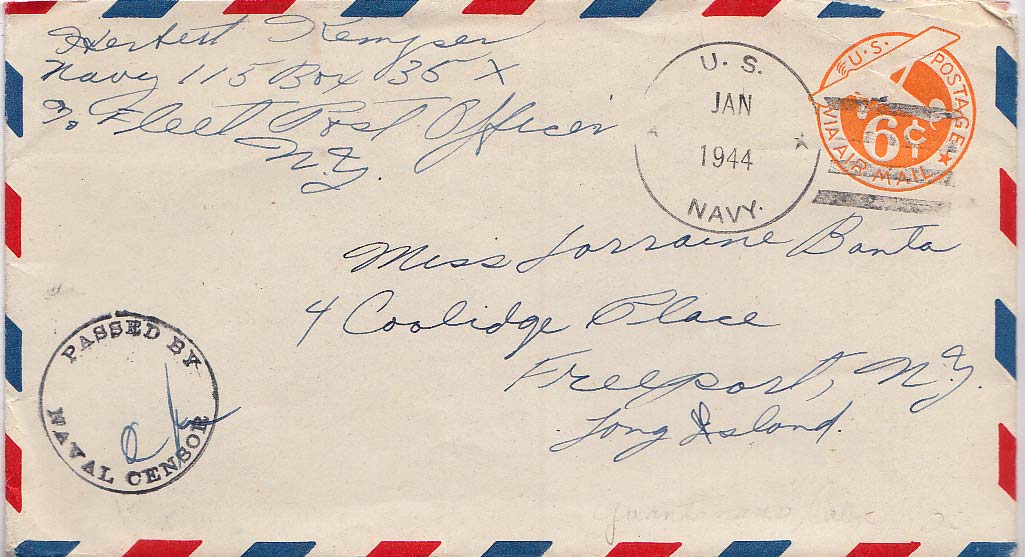 Herbert Kemper
Navy 115 Box 35 X
℅ Fleet Post Officer
N.Y.
U. S.
JAN
1944
NAVY.
U.S. POSTAGE
6¢
VIA AIR MAIL
Miss Lorraine Banta
4 Coolidge Place
Freeport, N.Y.
Long Island.
PASSED BY
ok
NAVAL CENSOR